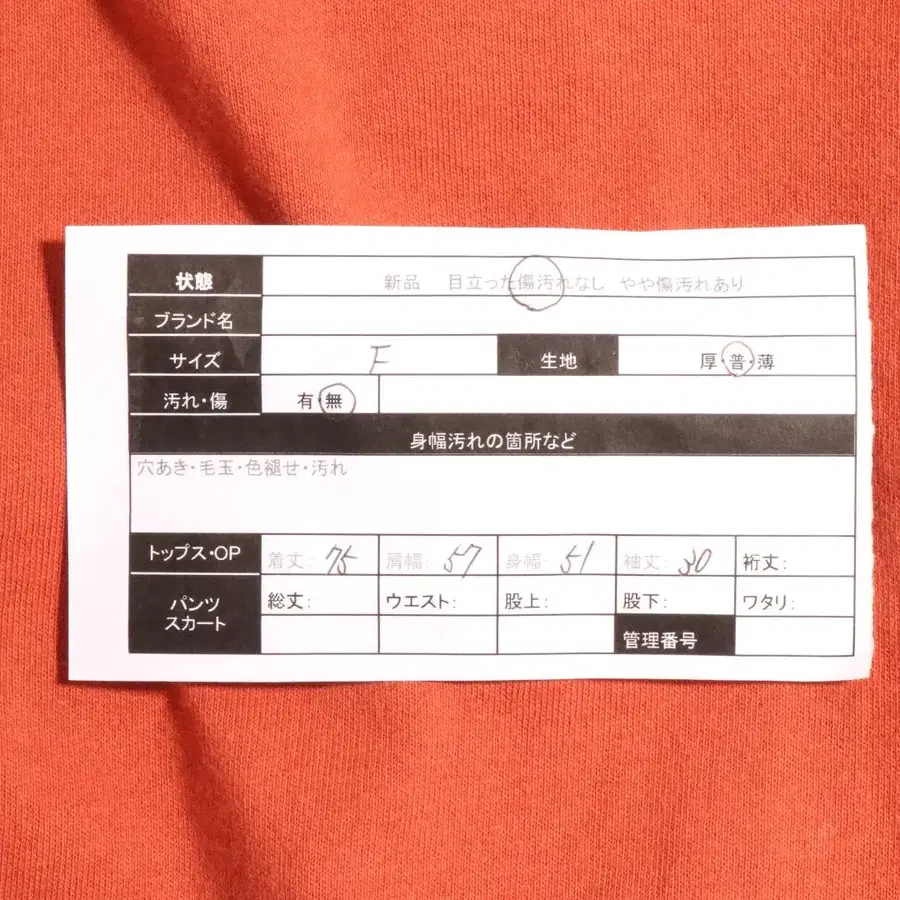 状態 新品 目立った傷汚れなし やや傷汚れあり
ブランド名
サイズ F 生地 厚・普・薄
汚れ・傷 有・無
身幅汚れの箇所など
穴あき・毛玉・色褪せ・汚れ
トップス・OP 着丈: 75 肩幅: 57 身幅: 51 袖丈: 30 裄丈:
パンツ スカート 総丈: ウエスト: 股上: 股下: ワタリ:
管理番号